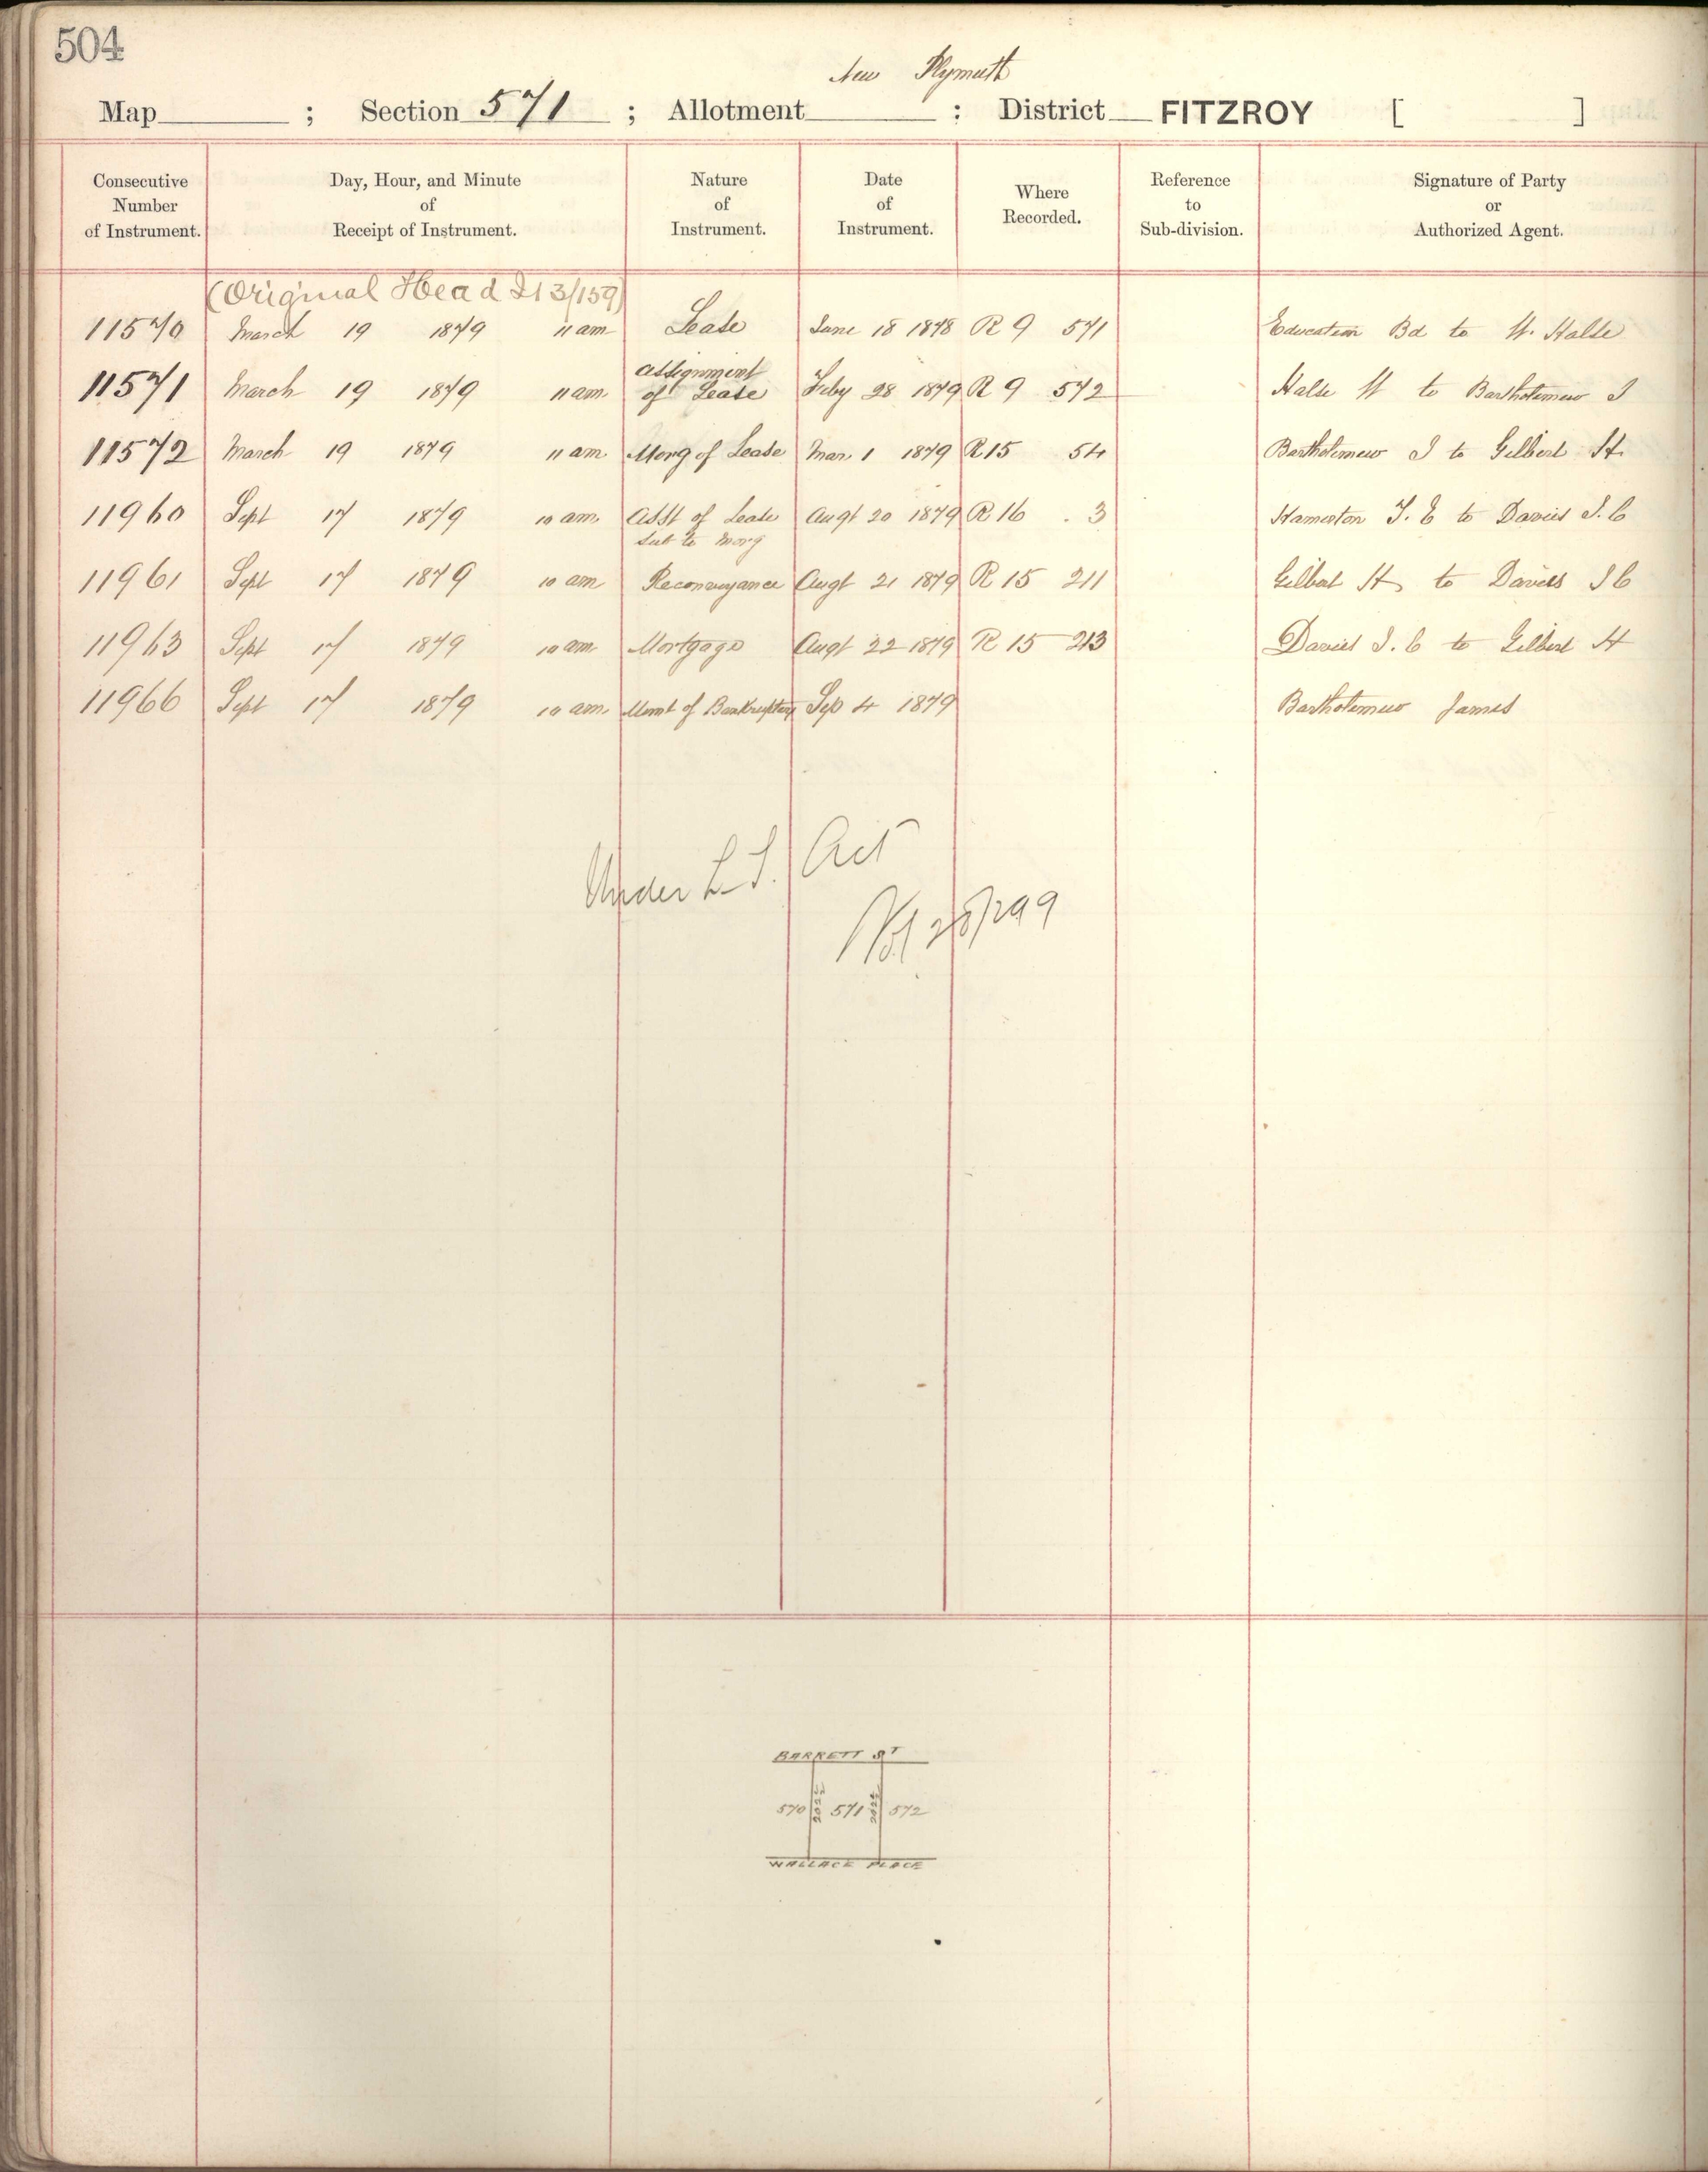 504
New Plymouth
Map ; Section 571 ; Allotment : District FITZROY [ ]
Consecutive Number of Instrument. Day, Hour, and Minute of Receipt of Instrument. Nature of Instrument. Date of Instrument. Where Recorded. Reference to Sub-division. Signature of Party or Authorized Agent.
(Original Head 213/159)
11570 March 19 1879 11 am Lease June 18 1878 R 9 571 Education Bd to W. Halse
11571 March 19 1879 11 am. assignment of Lease Feby 28 1879 R 9 572 Halse W to Bartholomew J
11572 March 19 1879 11 am Morg of Lease Mar. 1 1879 R 15 54 Bartholomew J to Gilbert H.
11960 Sept 17 1879 10 am. Asst of Lease sub to Morg Augt 20 1879 R 16 . 3 Hamerton T. E to Davies J. C
11961 Sept 17 1879 10 am Reconveyance Augt 21 1879 R 15 211 Gilbert H to Davies J C
11963 Sept 17 1879 10 am. Mortgage Augt 22 1879 R 15 213 Davies J. C to Gilbert H
11966 Sept 17 1879 10 am. Memt of Bankruptcy Sep 4 1879 Bartholomew James
Under L. T. Act
Vol 28/299
BARRETT ST
570 571 572
WALLACE PLACE